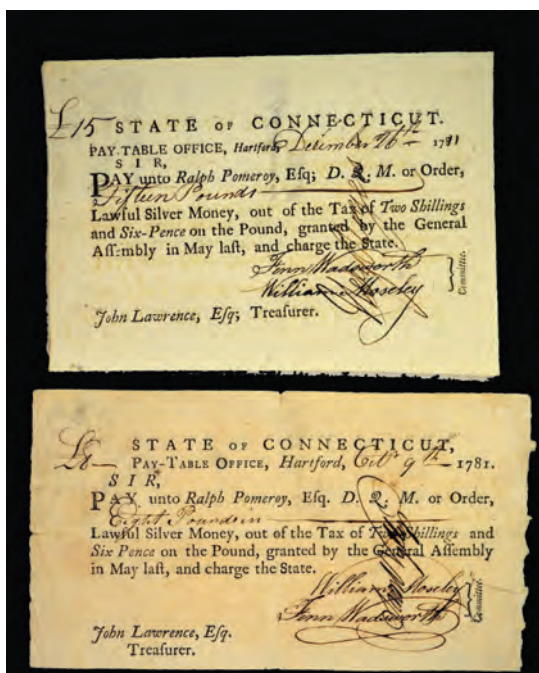 £15 STATE OF CONNECTICUT.
PAY-TABLE OFFICE, Hartford, December 26th 1781
SIR,
PAY unto Ralph Pomeroy, Esq; D. Q. M. or Order,
Fifteen Pounds
Lawful Silver Money, out of the Tax of Two Shillings
and Six-Pence on the Pound, granted by the General
Assembly in May last, and charge the State.
Fenn Wadsworth
William Moseley
Committee.
John Lawrence, Esq; Treasurer.
STATE OF CONNECTICUT,
£8— PAY-TABLE OFFICE, Hartford, Octr 9th — 1781.
SIR,
PAY unto Ralph Pomeroy, Esq. D. Q. M. or Order,
Eight Pounds in
Lawful Silver Money, out of the Tax of Two Shillings and
Six Pence on the Pound, granted by the General Assembly
in May last, and charge the State.
William Moseley
Fenn Wadsworth
Committee.
John Lawrence, Esq.
Treasurer.